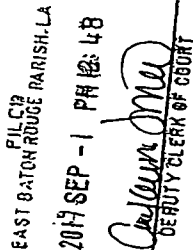 FILED
EAST BATON ROUGE PARISH, LA
2019 SEP -1 PM 12: 48
DEPUTY CLERK OF COURT